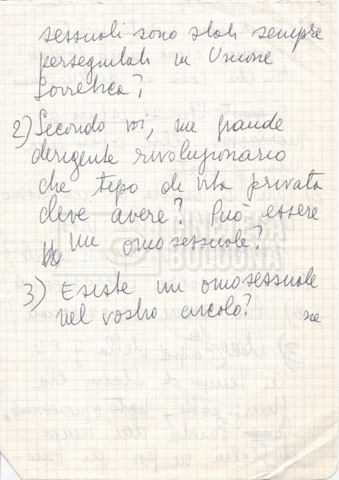 sessuali sono stati sempre
perseguitati in Unione
Sovietica?
2) Secondo voi, un grande
dirigente rivoluzionario
che tipo di vita privata
deve avere? Può essere
un omosessuale?
3) Esiste un omosessuale
nel vostro circolo?